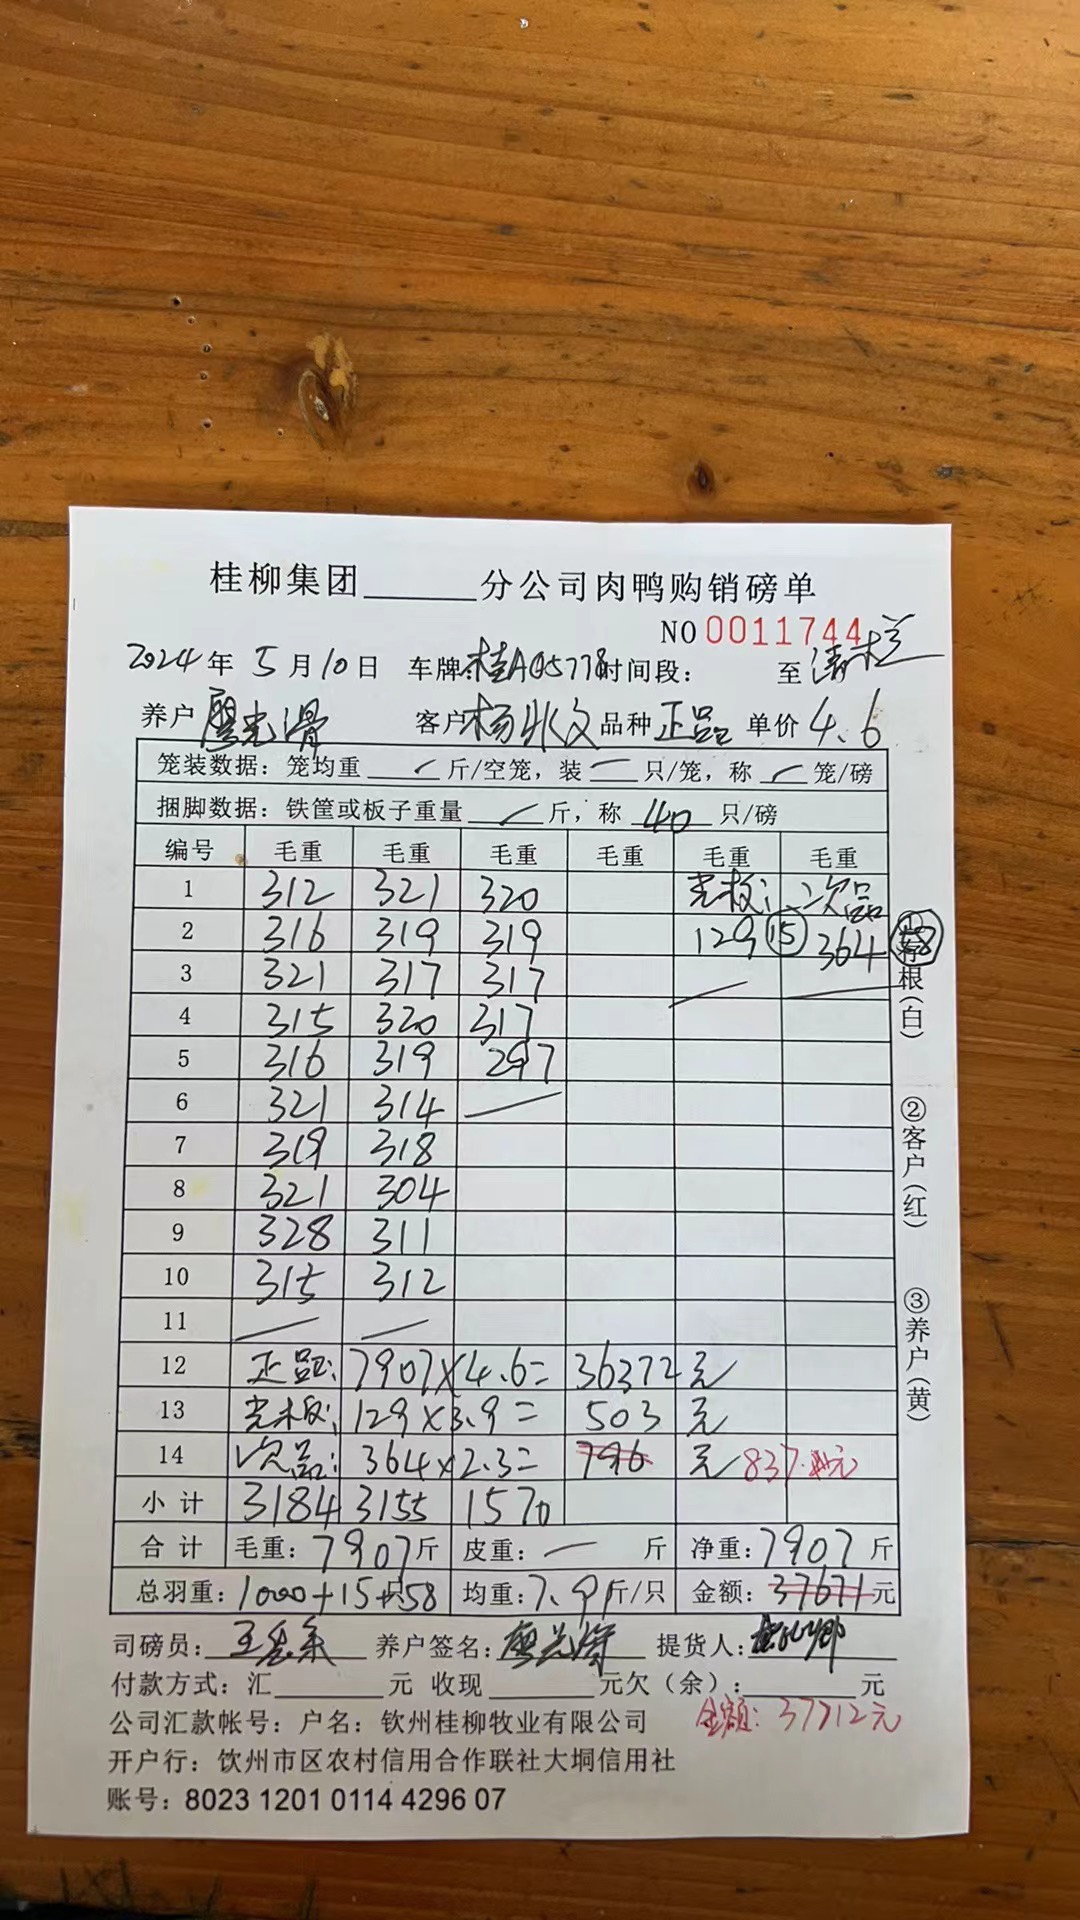 桂柳集团______分公司肉鸭购销磅单
NO 0011744
2024年 5月10日 车牌: 桂A05778 时间段: 至
养户 客户 杨 品种 正品 单价 4.6
笼装数据: 笼均重 ✓ 斤/空笼, 装 一 只/笼, 称 ✓ 笼/磅
捆脚数据: 铁筐或板子重量 ✓ 斤, 称 40 只/磅
编号 毛重 毛重 毛重 毛重 毛重 毛重
1 312 321 320 光板: 次品
2 316 319 319 129 ⑮ 364 58
3 321 317 317
4 315 320 317
5 316 319 297
6 321 314
7 319 318
8 321 304
9 328 311
10 315 312
11
12 正品: 7907×4.6= 36372元
13 光板: 129×3.9= 503元
14 次品: 364×2.3= 796 元 837元
小计 3184 3155 1570
合计 毛重: 7907斤 皮重: 一 斤 净重: 7907斤
总羽重: 1000+15+58 均重: 7.9斤/只 金额: 37671元
司磅员: 养户签名: 提货人:
付款方式: 汇______元 收现______元欠(余):______元
公司汇款帐号: 户名: 钦州桂柳牧业有限公司 金额: 37712元
开户行: 饮州市区农村信用合作联社大垌信用社
账号: 8023 1201 0114 4296 07
根(白)
②客户(红)
③养户(黄)